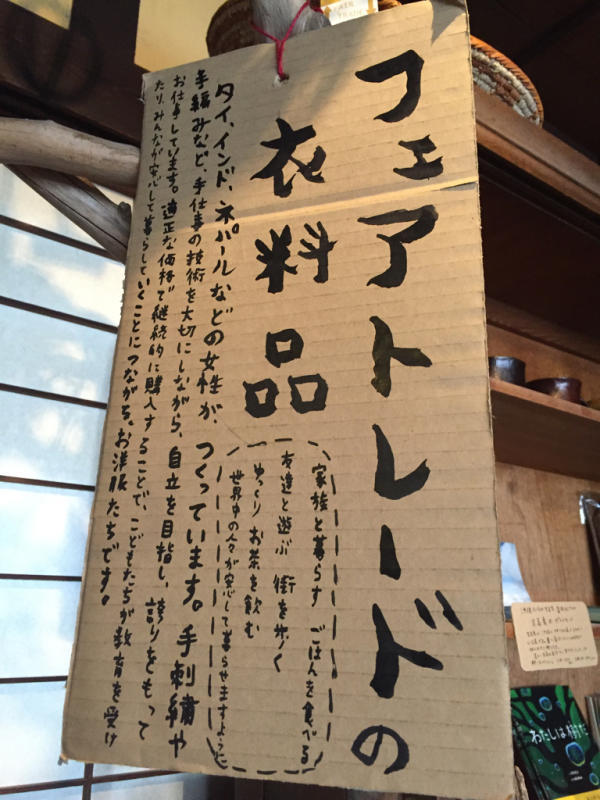 フェアトレードの
衣料品
家族と暮らす ごはんを食べる
友達と遊ぶ 街を歩く
ゆっくり お茶を飲む
世界中の人々が安心して暮らせますように
タイ、インド、ネパールなどの女性が、つくっています。手刺繍や
手編みなど、手仕事の技術を大切にしながら、自立を目指し、誇りをもって
お仕事しています。適正な価格で継続的に購入することで、こどもたちが教育を受け
たり、みんなが安心して暮らしていくことにつながる。お洋服たちです。
わたしは樹だ